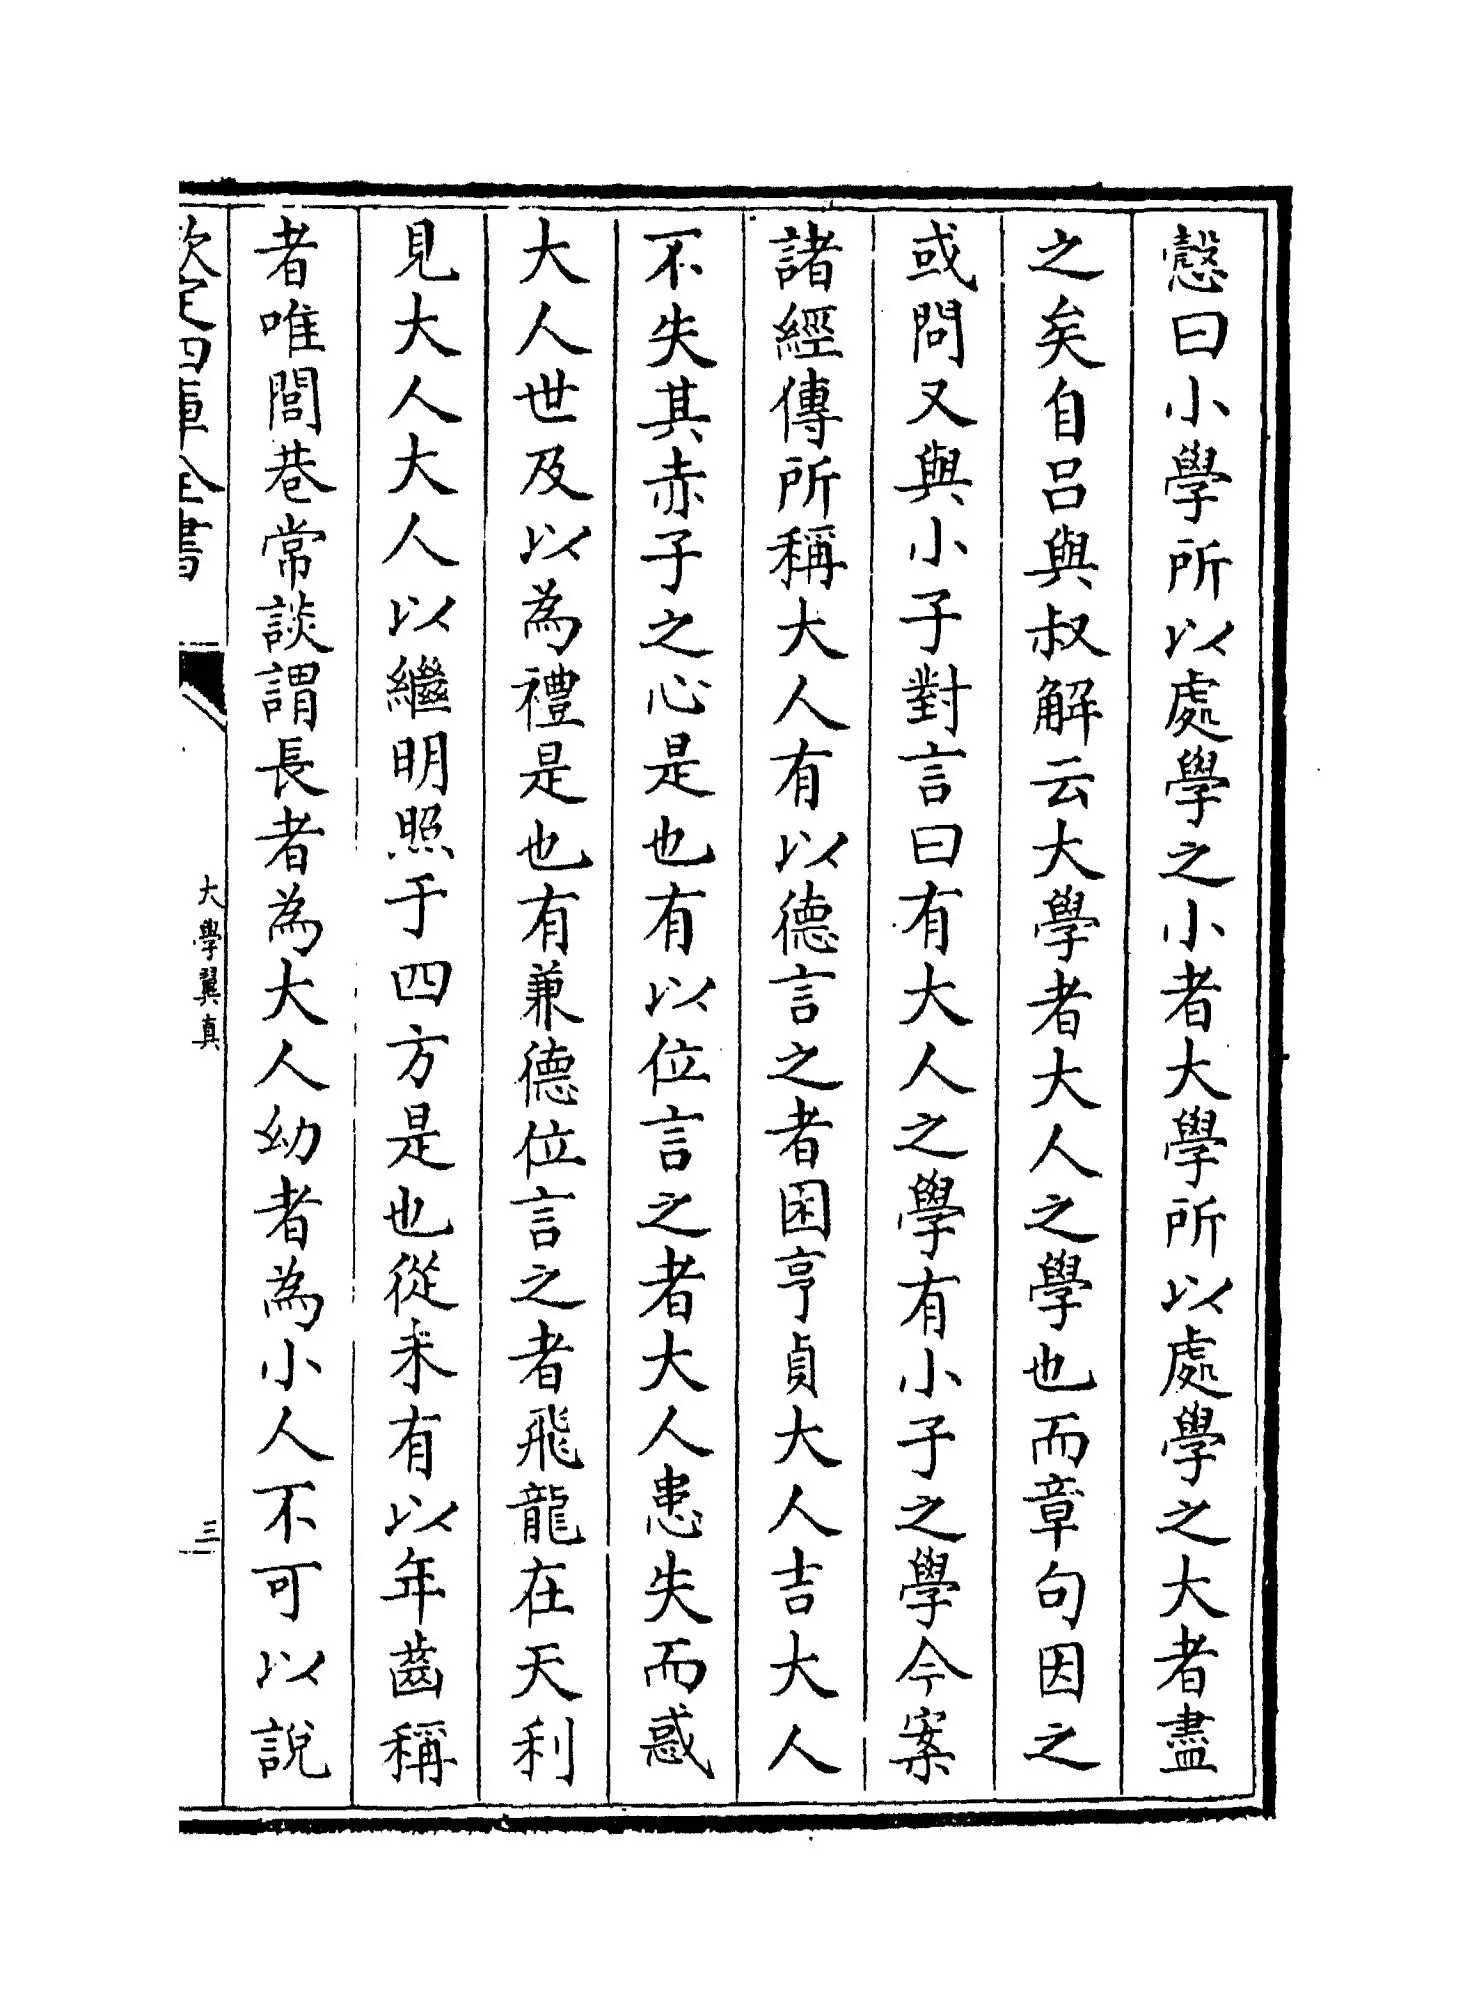 慤曰小學所以處學之小者大學所以處學之大者盡
之矣自呂與叔解云大學者大人之學也而章句因之
或問又與小子對言曰有大人之學有小子之學今案
諸經傳所稱大人有以德言之者困亨貞大人吉大人
不失其赤子之心是也有以位言之者大人患失而惑
大人世及以為禮是也有兼德位言之者飛龍在天利
見大人大人以繼明照于四方是也從来有以年齒稱
者唯閭巷常談謂長者為大人幼者為小人不可以說
欽定四庫全書
大學翼真
三